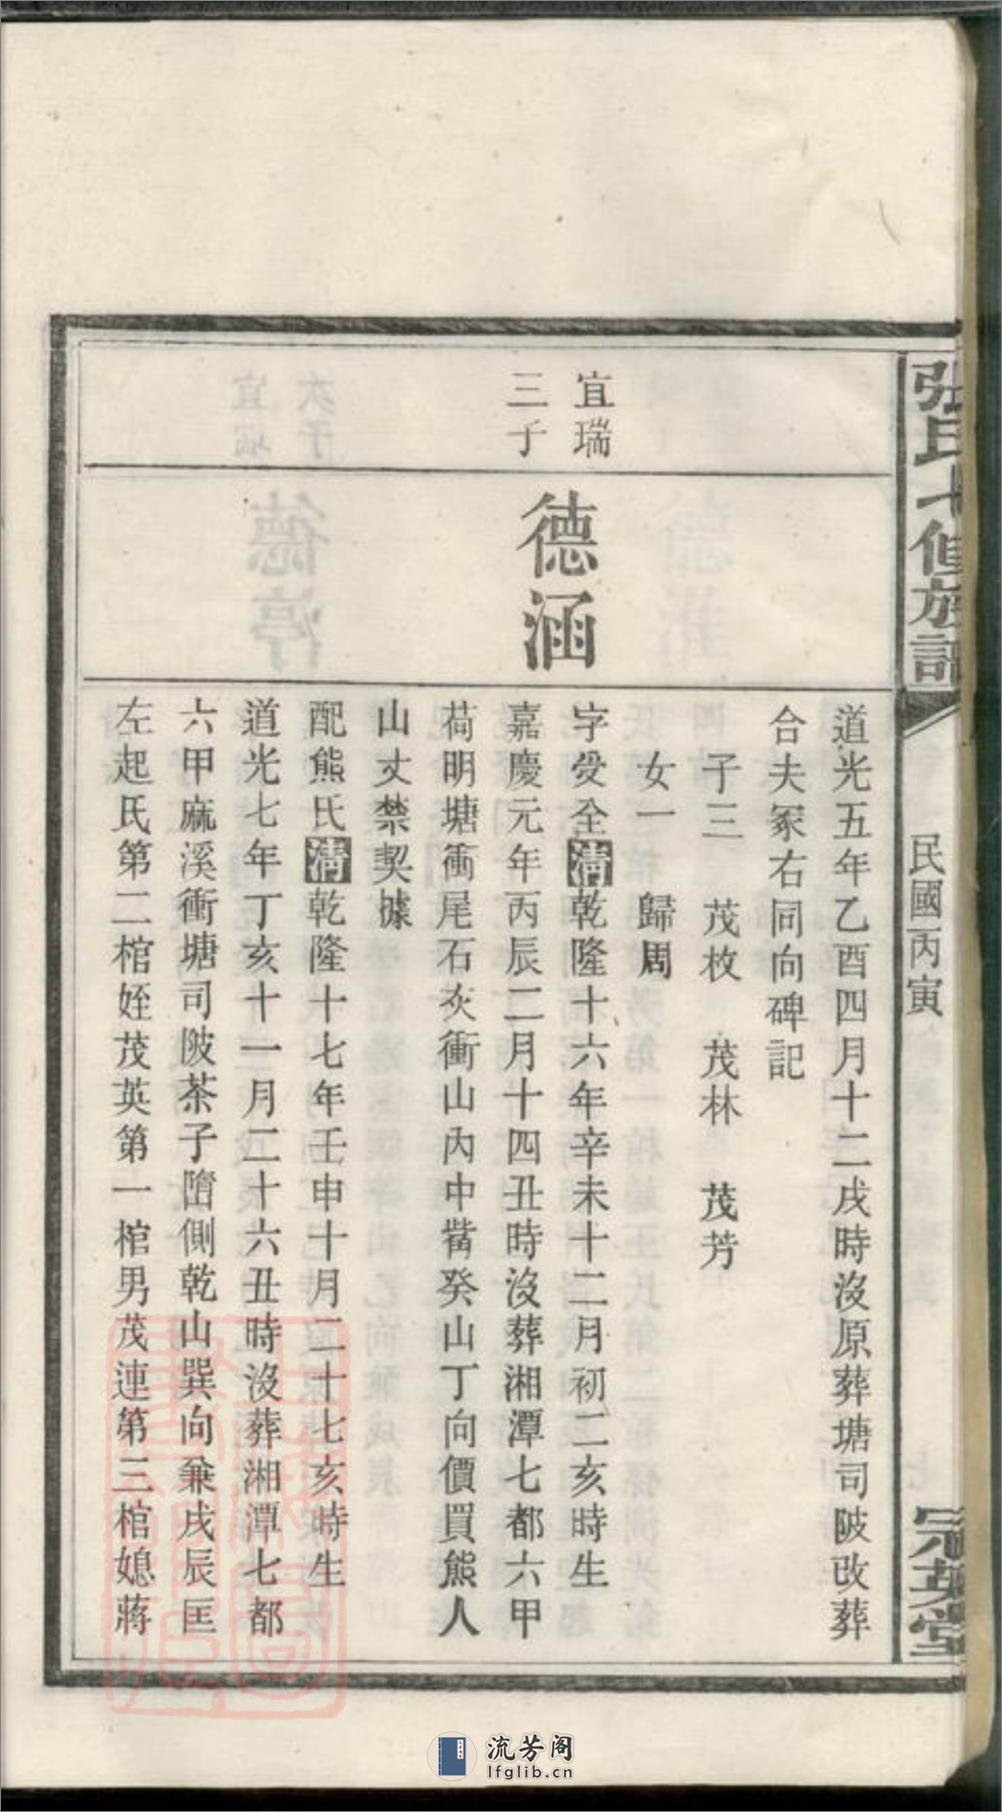 張氏七修族譜
民國丙寅
宗英堂
道光五年乙酉四月十二戌時沒原葬塘司陂改葬
合夫冢右同向碑記
子三 茂枚 茂林 茂芳
女一 歸周
宜瑞
三子
德涵
字受全清乾隆十六年辛未十二月初二亥時生
嘉慶元年丙辰二月十四丑時沒葬湘潭七都六甲
荷明塘衝尾石灰衝山內中嘴癸山丁向價買熊人
山丈禁契據
配熊氏清乾隆十七年壬申十月二十七亥時生
道光七年丁亥十一月二十六丑時沒葬湘潭七都
六甲蔴溪衝塘司陂茶子墮側乾山巽向兼戌辰匡
左起氏第二棺姪茂英第一棺男茂連第三棺媳蔣
流芳阁
lfglib.cn